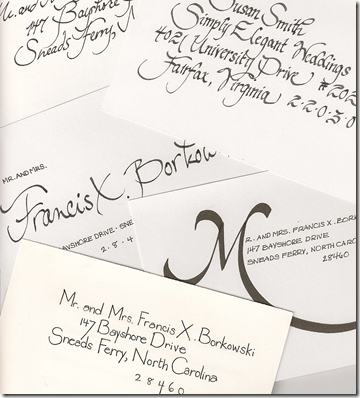 Mr. and
147 Bayshore
Sneads Ferry, N
Susan Smith
Simply Elegant Weddings
4021 University Drive #202
Fairfax, Virginia 2·2·0·3·0
MR. AND MRS.
Francis X. Borkow
BAYSHORE DRIVE · SNE
2 · 8 · 4
MR. AND MRS. FRANCIS X. BOR
147 BAYSHORE DRIVE
SNEADS FERRY, NORTH CARO
28460
Mr. and Mrs. Francis X. Borkowski
147 Bayshore Drive
Sneads Ferry, North Carolina
28460